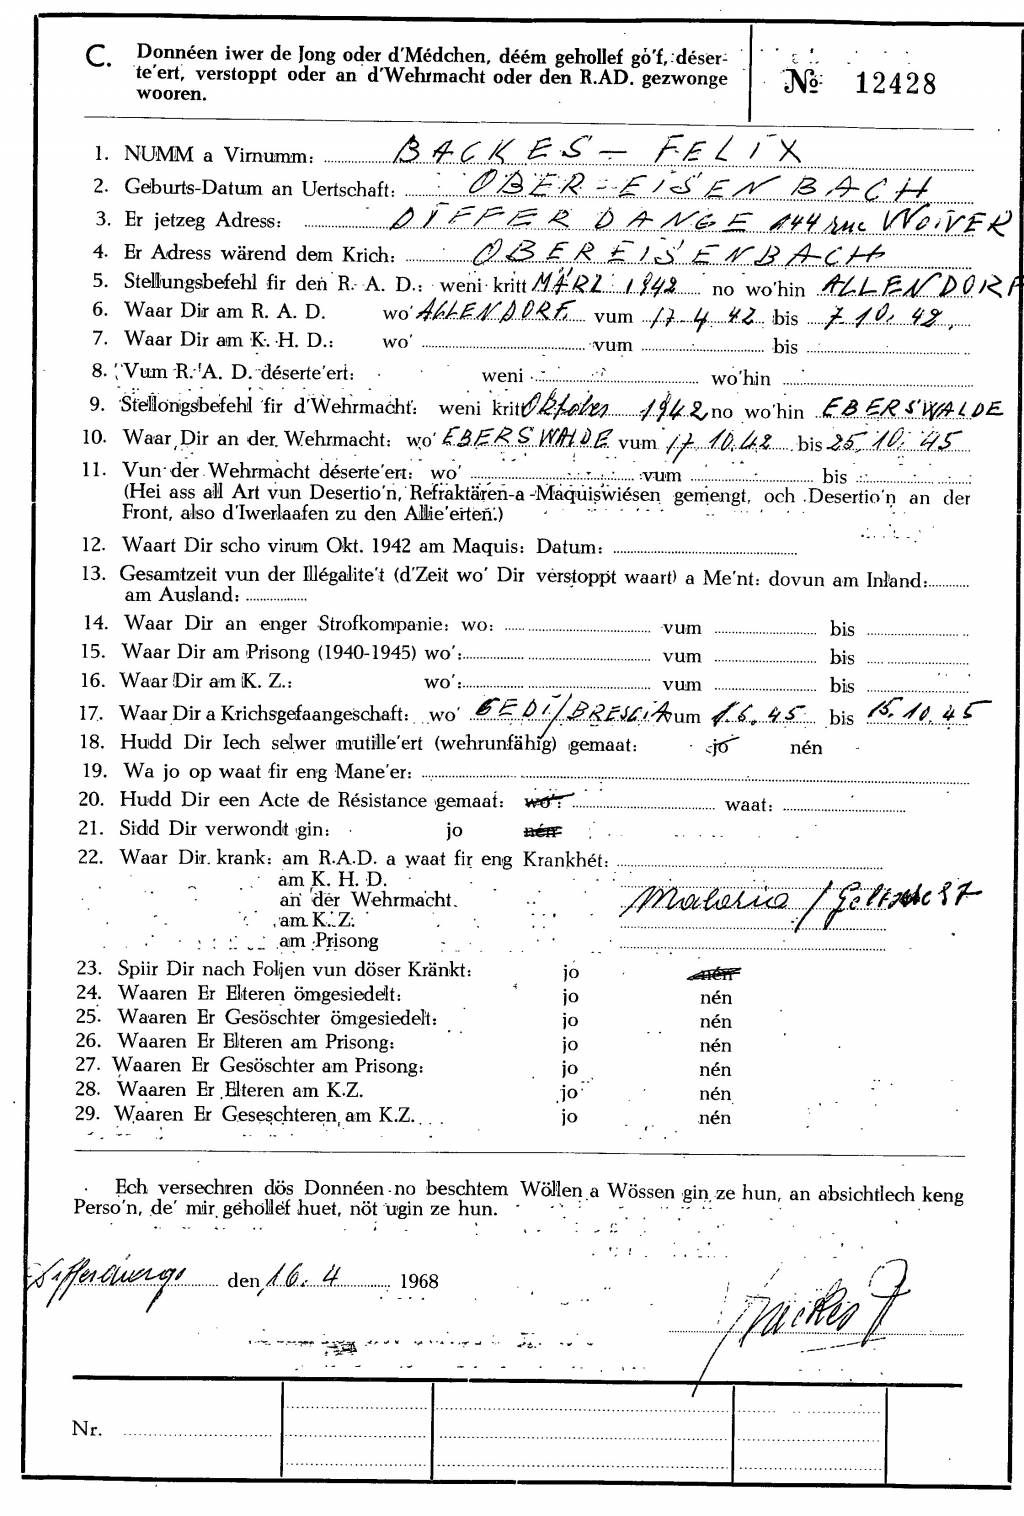 C. Donnéen iwer de Jong oder d'Médchen, déém gehollef gö'f, déser-
te'ert, verstoppt oder an d'Wehrmacht oder den R.AD. gezwonge
wooren.
No 12428
1. NUMM a Virnumm: BACKES - FELIX
2. Geburts-Datum an Uertschaft: OBER-EISENBACH
3. Er jetzeg Adress: DIFFERDANGE 144 rue WOIVER
4. Er Adress wärend dem Krich: OBEREISENBACH
5. Stellungsbefehl fir den R. A. D.: weni kritt MÄRZ 1942 no wo'hin ALLENDORF
6. Waar Dir am R. A. D. wo' ALLENDORF vum 17.4.42 bis 7.10.42.
7. Waar Dir am K. H. D.: wo' vum bis
8. Vum R. A. D. déserte'ert: weni wo'hin
9. Stellongsbefehl fir d'Wehrmacht: weni kritt Oktober 1942 no wo'hin EBERSWALDE
10. Waar Dir an der Wehrmacht: wo' EBERSWALDE vum 17.10.42 bis 25.10.45
11. Vun der Wehrmacht déserte'ert: wo' vum bis
(Hei ass all Art vun Desertio'n, Refraktären-a -Maquiswiésen gemengt, och Desertio'n an der
Front, also d'Iwerlaafen zu den Allie'erten.)
12. Waart Dir scho virum Okt. 1942 am Maquis: Datum:
13. Gesamtzeit vun der Illégalite't (d'Zeit wo' Dir verstoppt waart) a Me'nt: dovun am Inland:
am Ausland:
14. Waar Dir an enger Strofkompanie: wo: vum bis
15. Waar Dir am Prisong (1940-1945) wo': vum bis
16. Waar Dir am K. Z.: wo': vum bis
17. Waar Dir a Krichsgefaangeschaft: wo' GEDI/BRESCIA vum 1.6.45 bis 15.10.45
18. Hudd Dir Iech selwer mutille'ert (wehrunfähig) gemaat: jo nén
19. Wa jo op waat fir eng Mane'er:
20. Hudd Dir een Acte de Résistance gemaat: wo': waat:
21. Sidd Dir verwondt gin: jo nén
22. Waar Dir krank: am R.A.D. a waat fir eng Krankhét:
am K. H. D.
an der Wehrmacht. Malaria /
am K. Z.
am Prisong
23. Spiir Dir nach Foljen vun döser Kränkt: jo nén
24. Waaren Er Elteren ömgesiedelt: jo nén
25. Waaren Er Gesöschter ömgesiedelt: jo nén
26. Waaren Er Elteren am Prisong: jo nén
27. Waaren Er Gesöschter am Prisong: jo nén
28. Waaren Er Elteren am K.Z. jo nén
29. Waaren Er Geseschteren am K.Z. jo nén
Ech versechren dös Donnéen no beschtem Wöllen a Wössen gin ze hun, an absichtlech keng
Perso'n, de' mir gehollef huet, nöt ugin ze hun.
Differdange den 16.4 1968
Backes F
Nr.